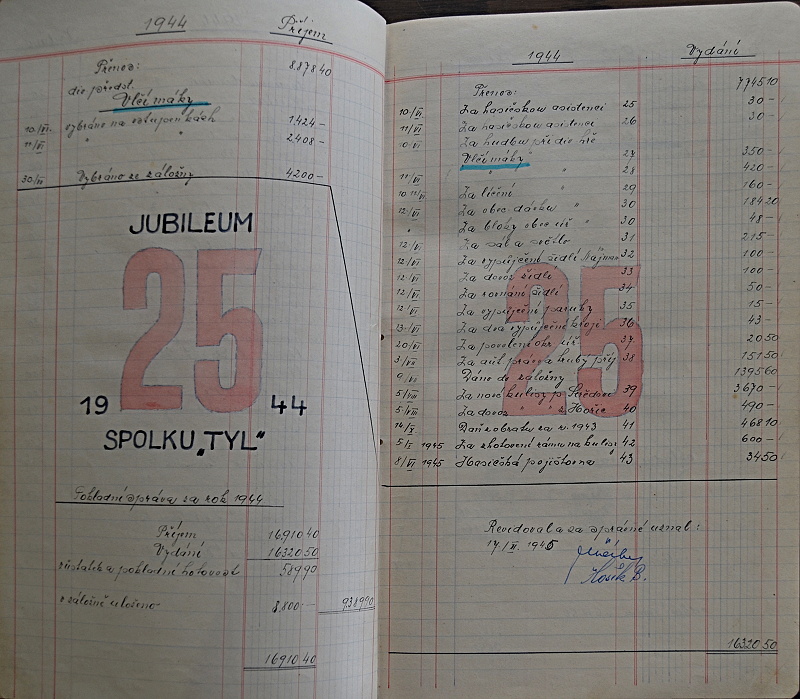 1944 Příjem
Přenos: 8.878 40
div. předst.
Vlčí máky
10./VI. vybráno na vstupenkách 1.424 –
11/VI " 2.408 –
30/VI Vybráno ze záložny 4200 –
JUBILEUM
25
19 44
SPOLKU „TYL“
Pokladní zpráva za rok 1944
Příjem 16910 40
Vydání 16320 50
zůstatek a pokladní hotovost 589 90
v záložně uloženo 8.800.– 9389 90
16910 40
1944 Vydání
Přenos: 7745 10
10/VI. Za hasičskou asistenci 25 30 –
11/VI Za hasičskou asistenci 26 30 –
10/VI Za hudbu při div. hře
Vlčí máky 27 350 –
11/VI " " 28 420 –
Za líčení 29 160 –
12/VI Za obec. dávku " 30 184 20
" Za bloky obec. 30 48 –
12/VI Za sál a světlo 31 215 –
12/VI Za vypůjčení židlí 32 100 –
12/VI Za dovoz židlí 33 100 –
12/VI Za rovnání židlí 34 50 –
12/VI Za vypůjčení paruky 35 15 –
13/VI Za dva vypůjčené kroje 36 43 –
20/VI Za povolení okr. 37 20 50
3/VII Za aut. práva a hrubý příj. 38 151 50
9/VII Dáno do záložny 1395 60
5/VIII Za nové kulisy p. 39 3670 –
5/VIII Za dovoz " z Hořic 40 490 –
14/X Daň z obratu za r. 1943 41 468 10
5/I 1945 Za zhotovení rámu na kulisy 42 600 –
8/VI 1945 Hasičská pojišťovna 43 34 50
Revidoval a za správné uznal:
17/II. 1945
Hošek B.
16320 50